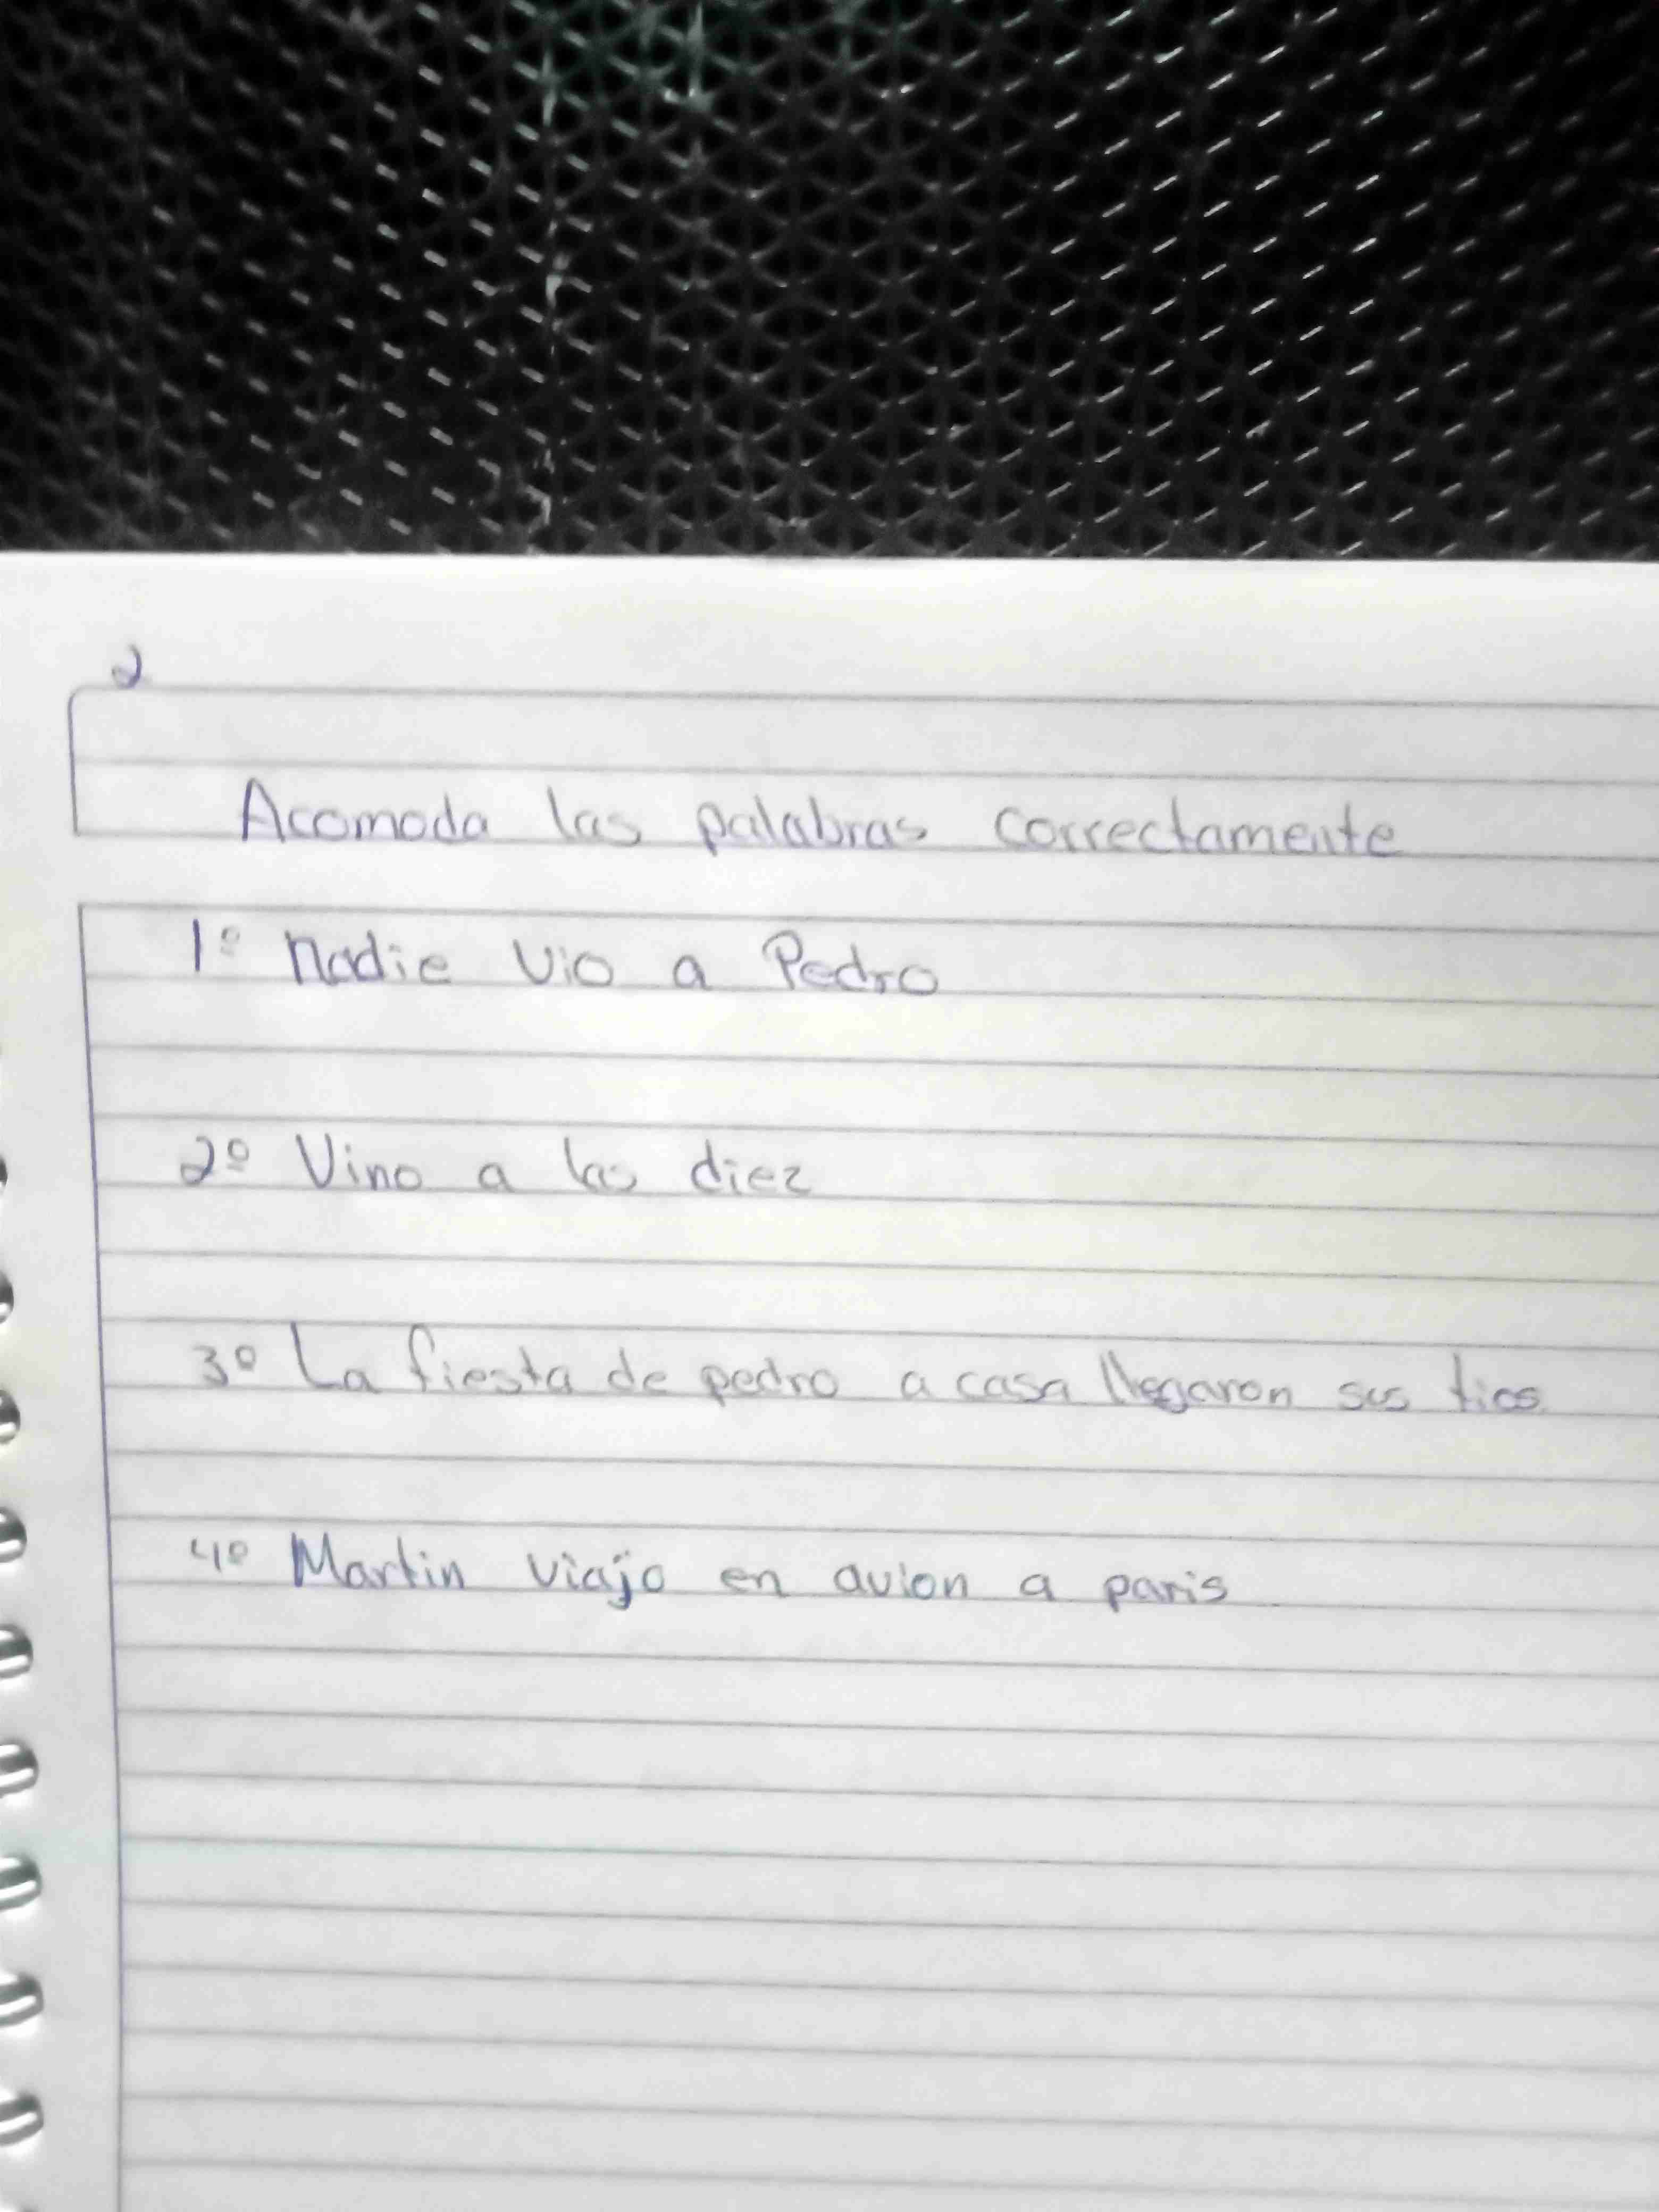 2
Acomoda las palabras correctamente
1º Nadie vio a Pedro
2º Vino a las diez
3º La fiesta de pedro a casa llegaron sus tios
4º Martin viajo en avion a paris